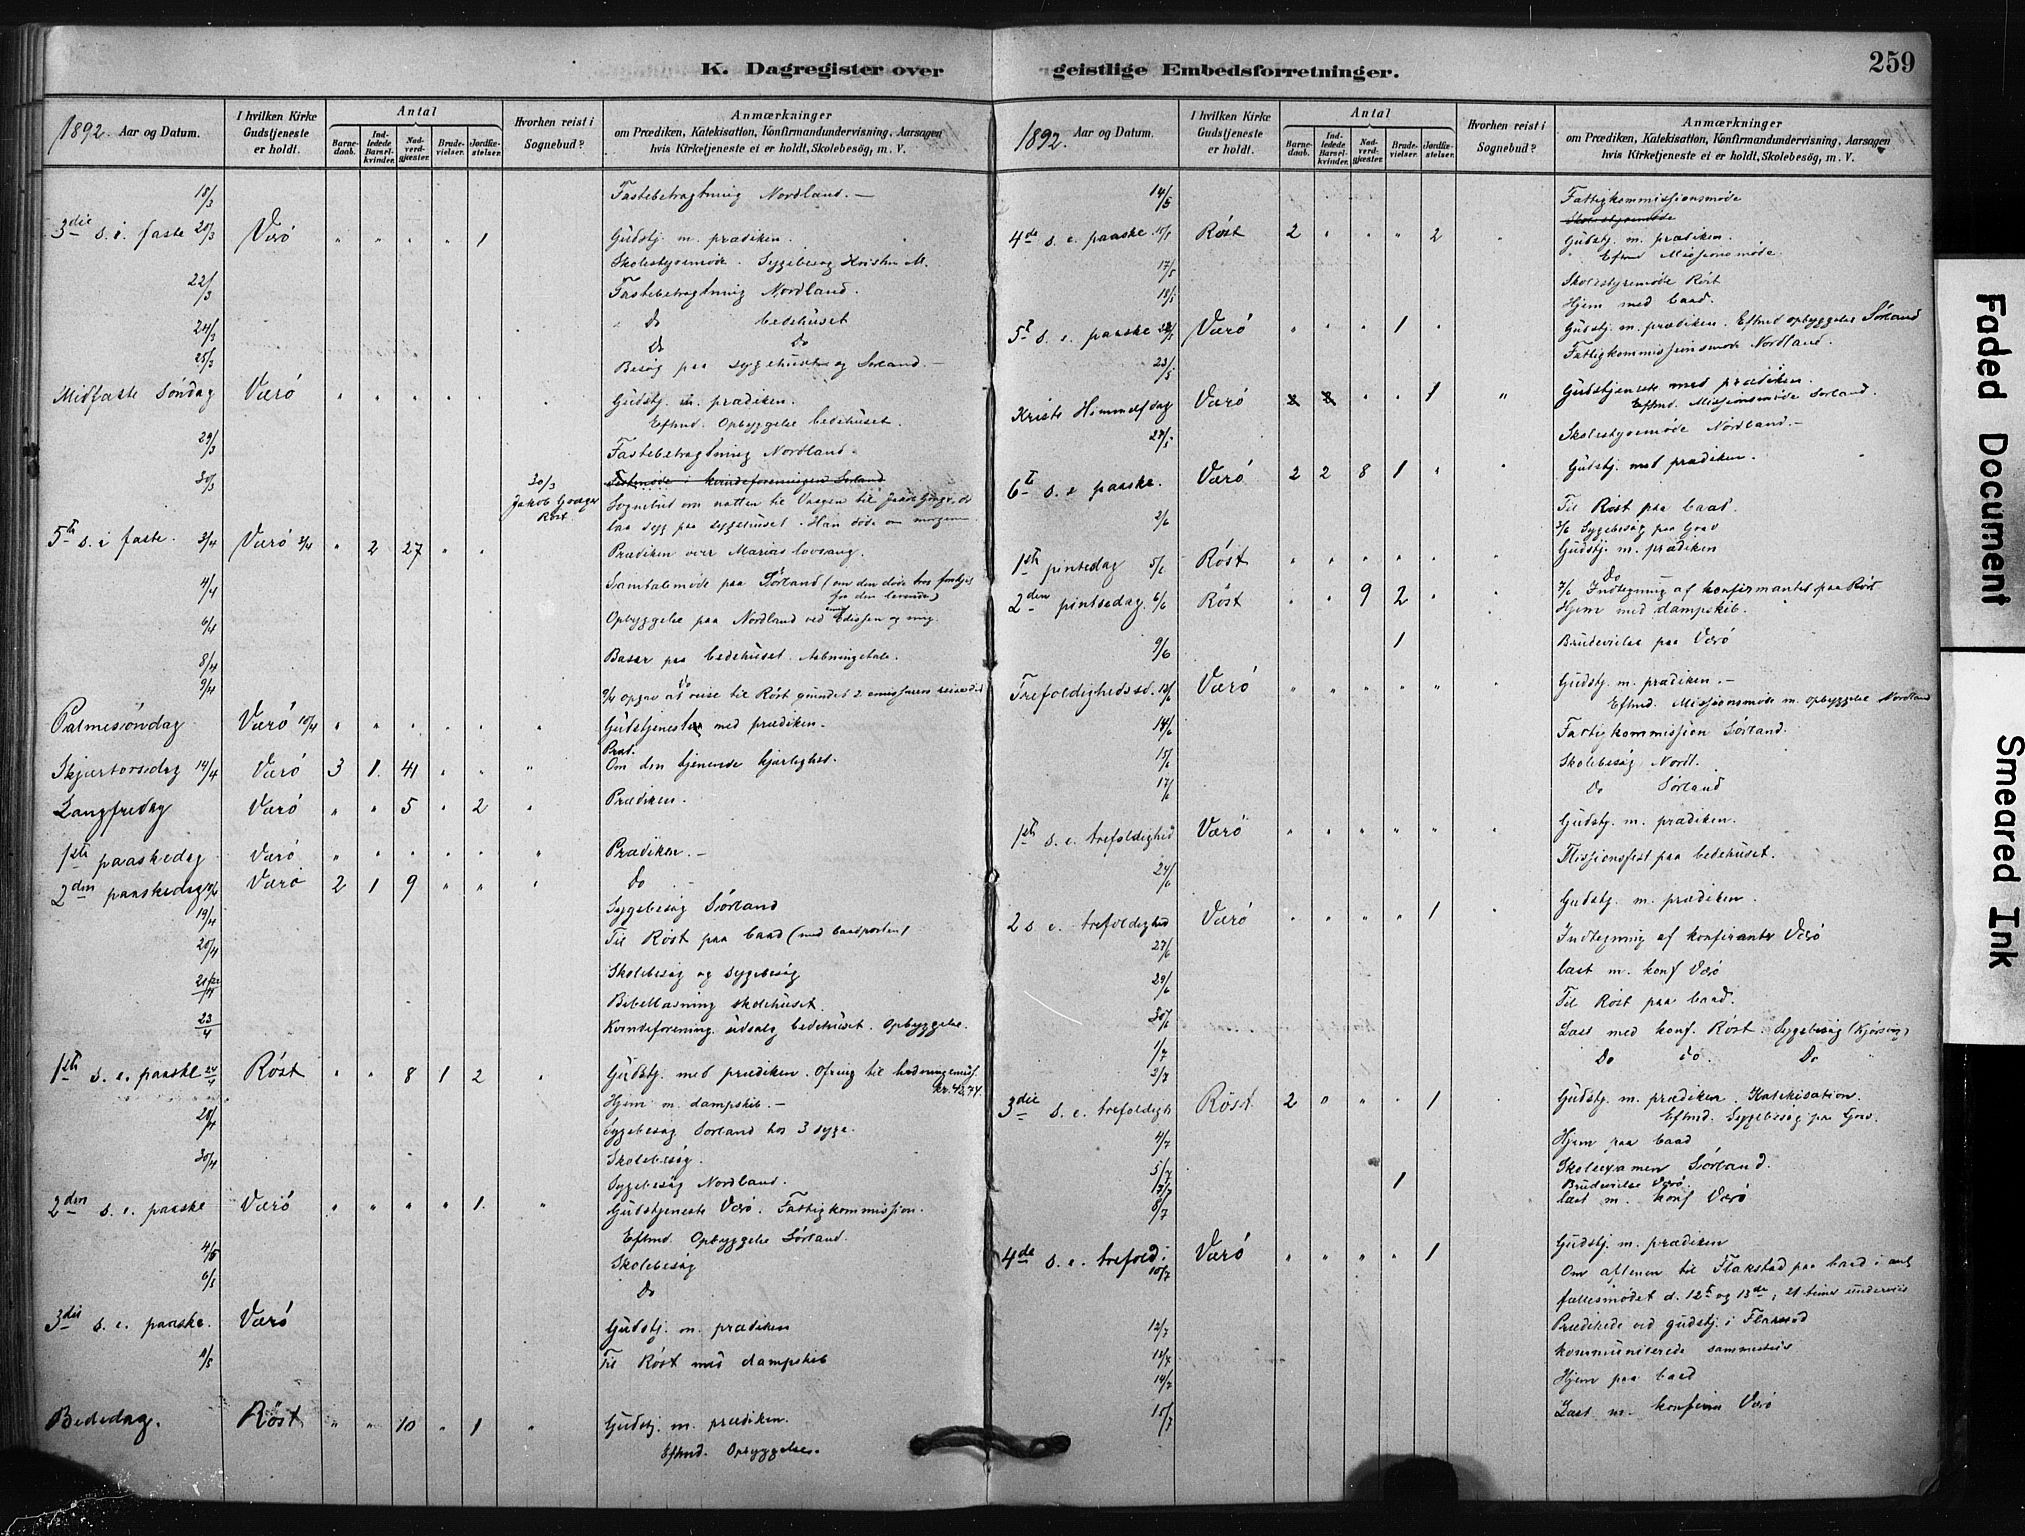 K. Dagregister over
geistlige Embedsforretninger.
259
1892. Aar og Datum.
I hvilken Kirke Gudstjeneste er holdt.
Antal
Barnedaab.
Indledede Barselkvinder.
Nadverdgjæster.
Brudevielser.
Jordfæstelser.
Hvorhen reist i Sognebud?
Anmærkninger
om Prædiken, Katekisation, Konfirmandundervisning, Aarsagen
hvis Kirketjeneste ei er holdt, Skolebesög, m. V.
18/3 Fastebetragtning Nordland. —
3die s. i. faste 20/3 Værö " " " " 1 Gudstj. m. prædiken.
Skolestyremöde. Sygebesög Kristen M.
22/3 Fastebetragtning Nordland.
24/3 Do bedehuset
25/3 Do Do
Besög paa sygehuset og Sörland —
Midfaste Söndag Værö " " " " " Gudstj. m. prædiken.
Eftmd. Opbyggelse bedehuset.
29/3 Fastebetragtning Nordland.
30/3 30/3 Jakob Röst i kvindeforeningen Sörland
Sognebud om natten til Vaagen til
laa syg paa sygehuset. Han döde om morgenen
5te s. i faste. 3/4 Værö 3/4 " 2 27 " " Prædiken over Marias lovsang.
4/4 Samtalemöde paa Sörland (om den döde tros
for den levende)
6/4 Opbyggelse paa Nordland ved og mig.
8/4 Basar paa bedehuset. Aabningstale.
9/4 9/4 opgav at reise til Röst grundet 2 emissærers reise did
Palmesöndag Værö 10/4 " " " " " Gudstjeneste med prædiken.
Skjærtorsdag 14/4 Værö 3 1. 41 " " Præd. Om den tjenende kjærlighed.
Langfredag Værö " " 5 " 2 Prædiken.
1ste paaskedag Værö " " " " " Prædiken. —
2den paaskedag 18/4 Værö 2 1 9 " " Do
19/4 Sygebesög Sörland
20/4 Til Röst paa baad (med baadposten)
21/22/4 Skolebesög og sygebesög
Bibellæsning skolehuset
23/4 Kvindeforening. udsalg bedehuset. Opbyggelse.
1ste s. e. paaske 24/4 Röst " " 8 1 2 Gudstj. med prædiken. Ofring til hedningemiss.
kr. 43,74.
28/4 Hjem m. dampskib. —
Sygebesög Sörland hos 3 syge.
30/4 Skolebesög.
Sygebesög Nordland.
2den s. e. paaske Værö " " " " 1. Gudstjeneste Værö. Fattigkommission.
Eftmd. Opbyggelse Sörland.
4/5 Skolebesög
6/5 Do
3die s. e. paaske. Værö Gudstj. m. prædiken
11/5 Til Röst med dampskib
Bededag. Röst " " 10 " 1 Gudstj. m. prædiken.
Eftmd. Opbyggelse.
1892. Aar og Datum.
I hvilken Kirke Gudstjeneste er holdt.
Antal
Barnedaab.
Indledede Barselkvinder.
Nadverdgjæster.
Brudevielser.
Jordfæstelser.
Hvorhen reist i Sognebud?
Anmærkninger
om Prædiken, Katekisation, Konfirmandundervisning, Aarsagen
hvis Kirketjeneste ei er holdt, Skolebesög, m. V.
14/5 Fattigkommissionsmöde
Skolestyremöde
4de s. e. paaske 15/5 Röst 2 " " " 2 Gudstj. m. prædiken.
Eftmd Missionsmöde
17/5 Skolestyremöde Röst
18/5 Hjem med baad.
5te s. e. paaske 22/5 Værö " " " 1 " Gudstj. m. prædiken. Eftmd opbyggelse Sörland
23/5 Fattigkommissionsmöde Nordland.
Kristi Himmelfdag Værö 2 2 " " 1 Gudstjeneste med prædiken.
Eftmd. Missionsmöde Sörland.
27/5 Skolestyremöde Nordland. —
6te s. e. paaske. Værö 2 2 8 1 " Gudstj. med prædiken.
2/6 Til Röst paa baad.
3/6 Sygebesög paa Grav
1ste pintsedag 5/6 Röst " " " " " Gudstj. m. prædiken
2den pintsedag. 6/6 Röst " " 9 2 " Do
7/6 Indtegning af konfirmanter paa Röst
Hjem med dampskib.
9/6 1 Brudevielse paa Værö
Trefoldighedssd. 12/6 Værö " " " " " Gudstj. m. prædiken. —
Eftmd. Missionsmöde m. opbyggelse Nordland
14/6 Fattigkommission Sörland.
15/6 Skolebesög Nordl.
17/6 Do Sörland
1ste s. e. trefoldighed Værö " " " " " Gudstj. m. prædiken.
24/6 Missionsfest paa bedehuset.
2 s. e. trefoldighed Værö " " " " 1 Gudstj. m. prædiken.
27/6 Indtegning af konfiranter Værö
29/6 læst m. konf Værö
30/6 Til Röst paa baad.
1/7 Læst med konf. Röst. Sygebesög
2/7 Do do. Do
3die s. e. trefoldigh Röst 2 " " " 1 Gudstj. m. prædiken. Katekisation.
Eftmd. Sygebesög paa Grav.
4/7 Hjem paa baad
5/7 Skoleexamen Sörland.
13/7 1 Brudevielse Værö
8/7 læst m. konf Værö
4de s. e. trefold: 10/7 Værö " " " " 1 Gudstj. m. prædiken
Om aftenen til Flakstad paa baad i anl
fællesmödet d. 12te og 13de; 21 timer underveis
12/7 Prædikede ved gudstj. i Flakstad
13/7 kommunicerede sammesteds
14/7 Hjem paa baad
15/7 Læst m. konfirm Værö
Faded Document
Smeared Ink